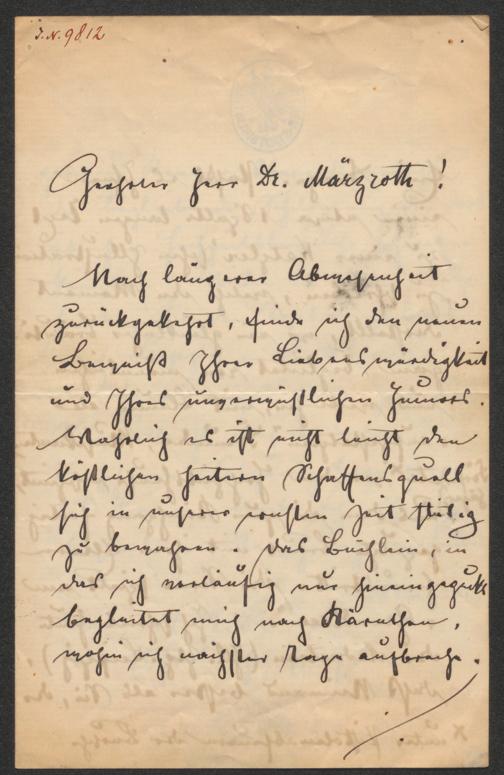 J.N. 9812
Geehrter Herr Dr. Märzroth!
Nach längerer Abwesenheit
zurückgekehrt, finde ich den neuen
Beweis Ihrer Liebenswürdigkeit
und Ihres unverwüstlichen Humors.
Wahrlich es ist nicht leicht den
köstlichen heitern Schaffensquell
sich in unserer ernsten Zeit stetig
zu bewahren. Das Büchlein, in
das ich vorläufig nur hineingeguckt
begleitet mich nach Kärnthen,
wohin ich nächster Tage aufbreche.